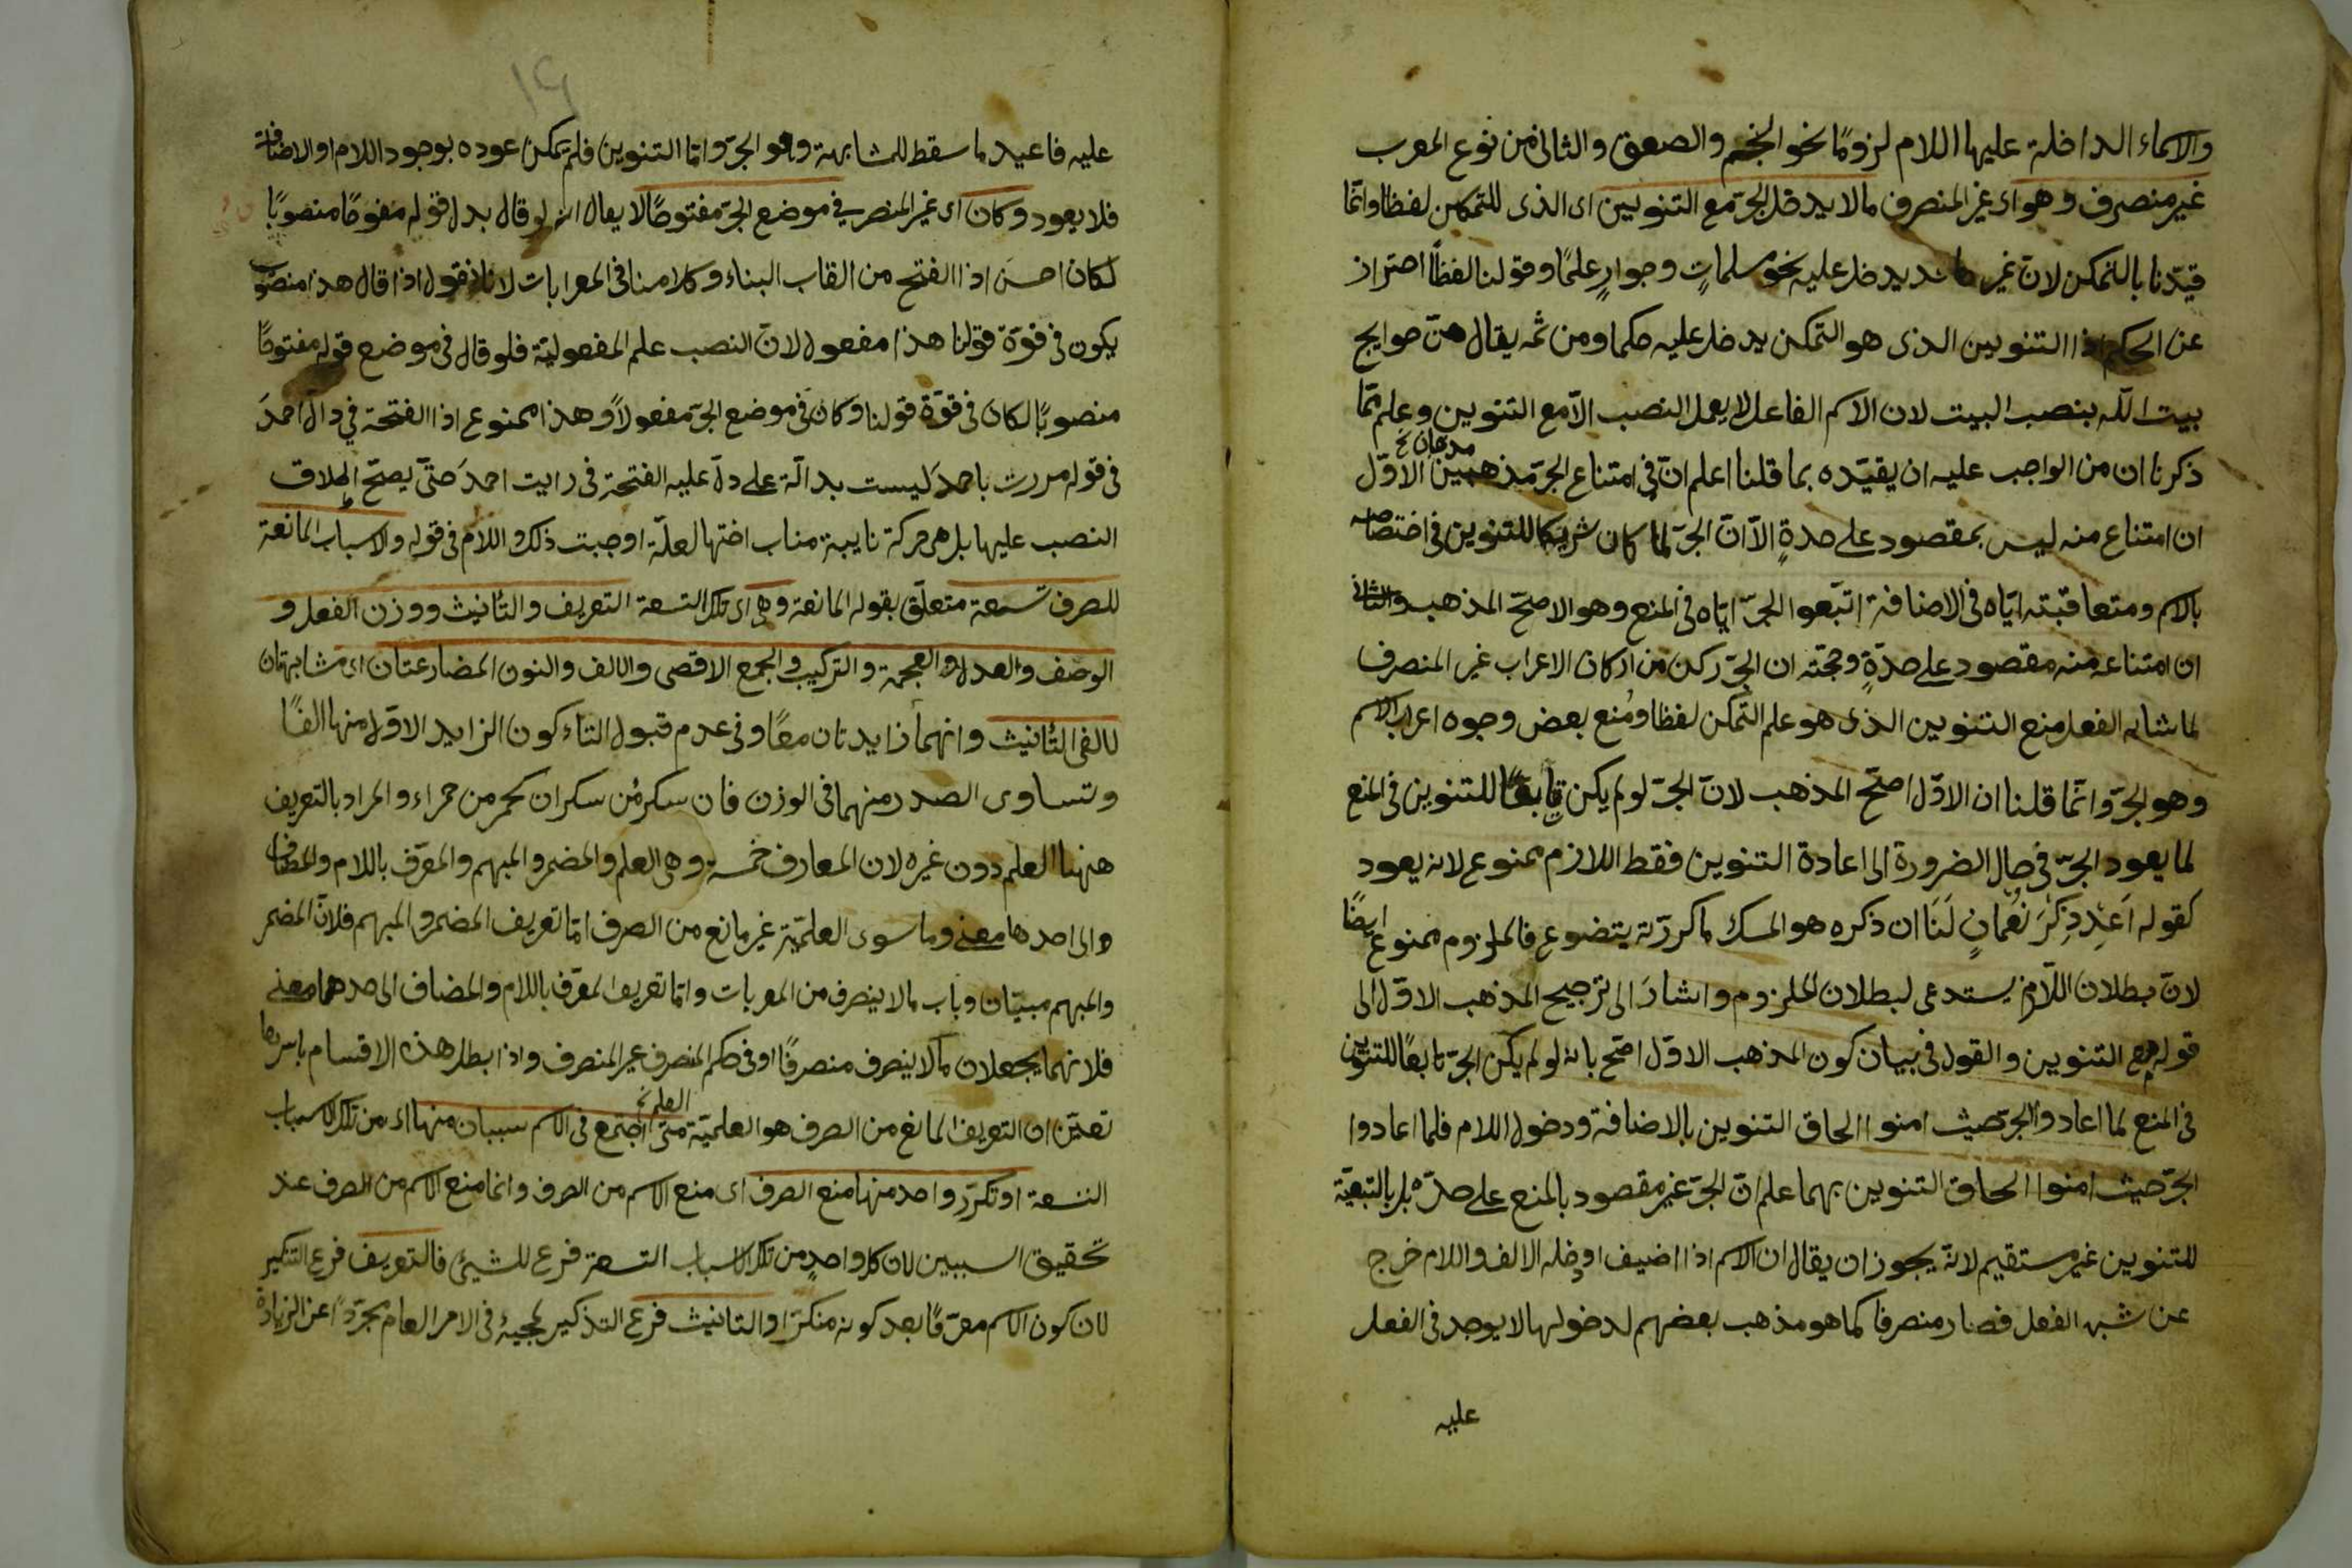 والاسماء الداخلة عليها اللام لزومًا نحو النجم والصعق والثانى من نوع المعرب
غير منصرف وهو اى غير المنصرف ما لا يدخل الجرّ مع التنوين اى الذى للتمكن لفظا وانّما
قيّدنا بالتمكن لانّ غير يدخل عليه نحو مسلماتٍ وجوارٍ علمًا وقولنا لفظاً احتراز
عن الحكم اذا التنوين الذى هو التمكن يدخل عليه حكما ومن ثمّه يقال هنّ حوايج
بيت اللّه بنصب البيت لان الاسم الفاعل لا يعمل النصب الّا مع التنوين وعلم ممّا
ذكرنا ان من الواجب عليه ان يقيّده بما قلنا اعلم انّ فى امتناع الجرّ مذهبين الاوّل
مذهبان خ
ان امتناع منه ليس بمقصود على حدةٍ الّا انّ الجرّ لما كان شريكا للتنوين فى اختصاصه
بالاسم ومتعاقبته ايّاه فى الاضافة اتبعوا الجرّ ايّاه فى المنع وهو الاصحّ المذهب والثانى
ان امتناعه منه مقصود على حدّةٍ وحجّته ان الجرّ ركن من اركان الاعراب غير المنصرف
لما شابه الفعل منع التنوين الذى هو علم التمكن لفظا ومُنع بعض وجوه اعراب الاسم
وهو الجرّ وانّما قلنا ان الاوّل اصحّ المذهب لانّ الجرّ لو لم يكن تابعًا للتنوين فى المنع
لما يعود الجرّ فى حال الضرورة الى اعادة التنوين فقط اللازم ممنوع لانه يعود
كقوله اَعِد ذِكْرَ نُعْمانٍ لَنَا ان ذكره هو المسك ما كرّرته يتضوع فالملزوم ممنوع ايضًا
لانّ بطلان اللّازم يستدعى لبطلان الملزوم واشارَ الى ترجيح المذهب الاوّل الى
قوله مع التنوين والقول فى بيان كون المذهب الاوّل اصّح بانه لو لم يكن الجرّ تابعًا للتنوين
فى المنع لما اعادوا الجرّ حيث امنوا الحاق التنوين بالاضافة ودخول اللام فلما اعادوا
الجرّ حيث امنوا الحاق التنوين بهما علم انّ الجرّ غير مقصود بالمنع على حدّه بل بالتبعيّة
للتنوين غير مستقيم لانّه يجوز ان يقال ان الاسم اذا اضيف او دخله الالف واللام خرج
عن شبه الفعل فصار منصرفا كما هو مذهب بعضهم لدخولها لا يوجد فى الفعل
عليه
عليه فاعيد ما سقط للمشابهة وهو الجرّ وامّا التنوين فلم يمكن عوده بوجود اللام او الاضافة
فلا يعود وكان اى غير المنصرف فى موضع الجرّ مفتوحًا لا يقال انه لو قال بدل قوله مفتوحًا منصوبًا
لكان احسن اذ الفتح من القاب البناء وكلامنا فى المعرابات لانا نقول اذا قال هذا منصوب
يكون فى قوّة قولنا هذا مفعول لانّ النصب علم المفعولية فلو قال فى موضع قوله مفتوحًا
منصوبًا لكان فى قوّة قولنا وكان فى موضع الجرّ مفعولاً وهذا ممنوع اذا الفتحة فى دال احمدَ
فى قوله مررت باحمدَ ليست بدالّة على دلّ عليه الفتحة فى رايت احمدَ حتّى يصحّ اطلاق
النصب عليها بل هى حركة نايبة مناب اختها لعلّة اوجبت ذلك واللام فى قوله والاسباب المانعة
للصرف تسعة متعلّق بقوله المانعة وهى اى تلك التسعة التعريف والتأنيث ووزن الفعل و
الوصف والعدل والعجمة والتركيب والجمع الاقصى والالف والنون المضارعتان اى مشابهتان
لالفى التأنيث وانهما زايدتان معًا وفى عدم قبول التاء كون الزايد الاوّل منها الفًا
وتساوى الصدر منهما فى الوزن فان سكر من سكران كحمر من حمراء والمراد بالتعريف
ههنا العلم دون غيره لان المعارف خمسة وهى العلم والمضمر والمبهم والمعّرف باللام والمضاف
والى احدها معنى وما سوى العلميّة غير مانع من الصرف امّا تعريف المضمر والمبهم فلانّ المضمر
والمبهم مبنيّان وباب ما لا ينصرف من المعربات وامّا تعريف المعّرف باللام والمضاف الى احدهما معنى
فلانهما يجعلان ما لا ينصرف منصرفًا او فى حكم المنصرف غير المنصرف واذا بطل هذه الاقسام باسرها
تعيّن ان التعريف المانع من الصرف هو العلميّة متى اجتمع فى الاسم سببان منها اى من تلك الاسباب
العلم خ
التسعة او تكرّر واحد منها منع الصرف اى منع الاسم من الصرف وانما منع الاسم من الصرف عند
تحقيق السببين لان كل واحدٍ من تلك الاسباب التسعة فرع للشيئ فالتعريف فرع التنكير
لان كون الاسم معرّفًا بعد كونه منكرًا والتانيث فرع التذكير لمجيئه فى الامر العام مجرّدًا عن الزيادة